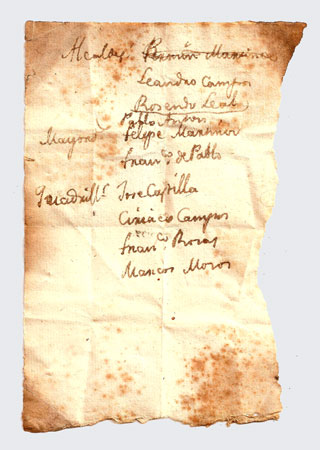 Alcaldes Ramón Martinez
Leandro Campos
Rosendo Leal
Pablo
Mayord Felipe Martinez
Franco de Pablo
Quadrills Jose Castilla
Ciriaco Campos
Franco Rosas
Marcos Moros